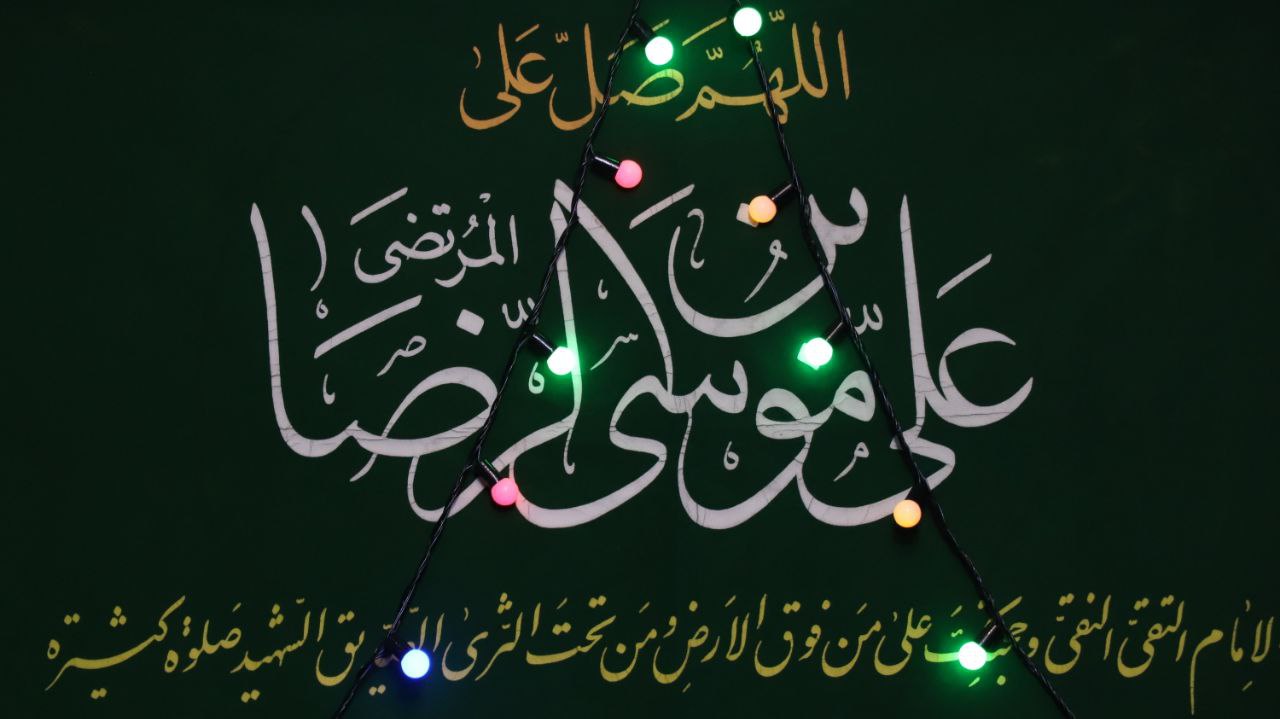 اللّٰهُمَّ صَلِّ عَلىٰ
عَلِيِّ بْنِ مُوسَى الرِّضَا الْمُرْتَضى
الاِمٰامِ التَّقىِّ النَّقىِّ وَحُجَّتِكَ عَلىٰ مَن فَوقَ الاَرضِ وَ مَن تَحتَ الثَّرىٰ الصِّدّيقِ الشَّهيدِ صَلوٰةً كَثيرَةً